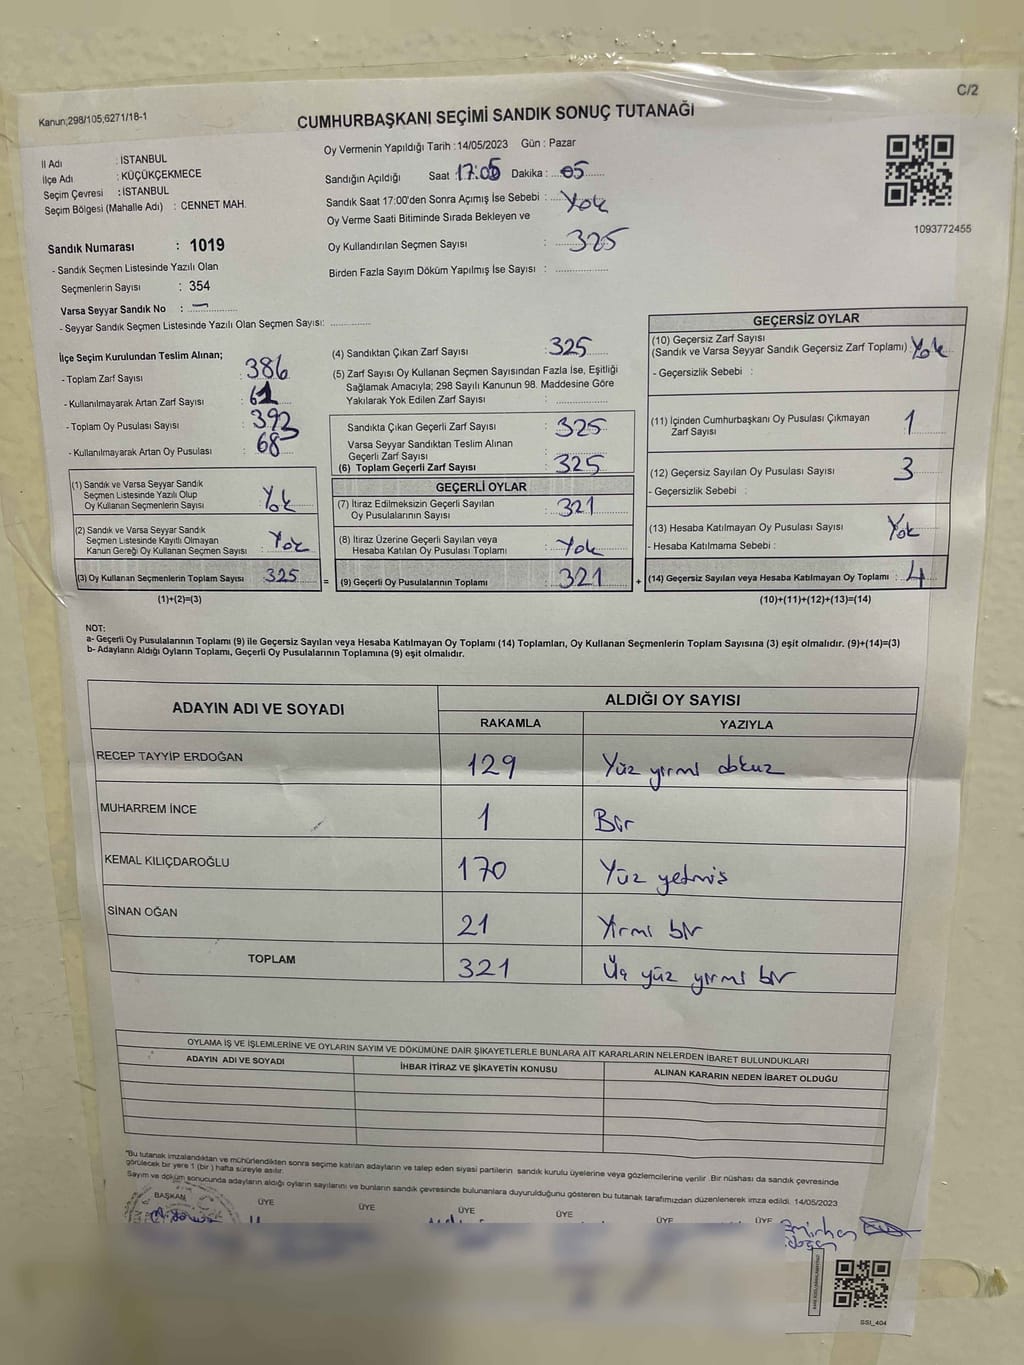 C/2
Kanun,298/105,6271/18-1
CUMHURBAŞKANI SEÇİMİ SANDIK SONUÇ TUTANAĞI
İl Adı : İSTANBUL
İlçe Adı : KÜÇÜKÇEKMECE
Seçim Çevresi : İSTANBUL
Seçim Bölgesi (Mahalle Adı) : CENNET MAH.
Oy Vermenin Yapıldığı Tarih :14/05/2023 Gün : Pazar
Sandığın Açıldığı Saat 17:05 Dakika : 05
Sandık Saat 17:00'den Sonra Açımış İse Sebebi : Yok
Oy Verme Saati Bitiminde Sırada Bekleyen ve
Oy Kullandırılan Seçmen Sayısı : 325
Birden Fazla Sayım Döküm Yapılmış İse Sayısı :
1093772455
Sandık Numarası : 1019
- Sandık Seçmen Listesinde Yazılı Olan
Seçmenlerin Sayısı : 354
Varsa Seyyar Sandık No : —
- Seyyar Sandık Seçmen Listesinde Yazılı Olan Seçmen Sayısı:
İlçe Seçim Kurulundan Teslim Alınan;
- Toplam Zarf Sayısı : 386
- Kullanılmayarak Artan Zarf Sayısı : 61
- Toplam Oy Pusulası Sayısı : 393
- Kullanılmayarak Artan Oy Pusulası : 68
(1) Sandık ve Varsa Seyyar Sandık
Seçmen Listesinde Yazılı Olup
Oy Kullanan Seçmenlerin Sayısı : Yok
(2) Sandık ve Varsa Seyyar Sandık
Seçmen Listesinde Kayıtlı Olmayan
Kanun Gereği Oy Kullanan Seçmen Sayısı : Yok
(3) Oy Kullanan Seçmenlerin Toplam Sayısı : 325 =
(1)+(2)=(3)
(4) Sandıktan Çıkan Zarf Sayısı : 325
(5) Zarf Sayısı Oy Kullanan Seçmen Sayısından Fazla İse, Eşitliği
Sağlamak Amacıyla; 298 Sayılı Kanunun 98. Maddesine Göre
Yakılarak Yok Edilen Zarf Sayısı :
Sandıkta Çıkan Geçerli Zarf Sayısı : 325
Varsa Seyyar Sandıktan Teslim Alınan
Geçerli Zarf Sayısı :
(6) Toplam Geçerli Zarf Sayısı : 325
GEÇERLİ OYLAR
(7) İtiraz Edilmeksizin Geçerli Sayılan
Oy Pusulalarının Sayısı : 321
(8) İtiraz Üzerine Geçerli Sayılan veya
Hesaba Katılan Oy Pusulası Toplamı : Yok
(9) Geçerli Oy Pusulalarının Toplamı : 321 +
GEÇERSİZ OYLAR
(10) Geçersiz Zarf Sayısı
(Sandık ve Varsa Seyyar Sandık Geçersiz Zarf Toplamı) : Yok
- Geçersizlik Sebebi :
(11) İçinden Cumhurbaşkanı Oy Pusulası Çıkmayan
Zarf Sayısı : 1
(12) Geçersiz Sayılan Oy Pusulası Sayısı : 3
- Geçersizlik Sebebi :
(13) Hesaba Katılmayan Oy Pusulası Sayısı : Yok
- Hesaba Katılmama Sebebi :
(14) Geçersiz Sayılan veya Hesaba Katılmayan Oy Toplamı : 4
(10)+(11)+(12)+(13)=(14)
NOT:
a- Geçerli Oy Pusulalarının Toplamı (9) ile Geçersiz Sayılan veya Hesaba Katılmayan Oy Toplamı (14) Toplamları, Oy Kullanan Seçmenlerin Toplam Sayısına (3) eşit olmalıdır. (9)+(14)=(3)
b- Adayların Aldığı Oyların Toplamı, Geçerli Oy Pusulalarının Toplamına (9) eşit olmalıdır.
ADAYIN ADI VE SOYADI
ALDIĞI OY SAYISI
RAKAMLA YAZIYLA
RECEP TAYYİP ERDOĞAN 129 Yüz yirmi dokuz
MUHARREM İNCE 1 Bir
KEMAL KILIÇDAROĞLU 170 Yüz yetmiş
SİNAN OĞAN 21 Yirmi bir
TOPLAM 321 Üç yüz yirmi bir
OYLAMA İŞ VE İŞLEMLERİNE VE OYLARIN SAYIM VE DÖKÜMÜNE DAİR ŞİKAYETLERLE BUNLARA AİT KARARLARIN NELERDEN İBARET BULUNDUKLARI
ADAYIN ADI VE SOYADI İHBAR İTİRAZ VE ŞİKAYETİN KONUSU ALINAN KARARIN NEDEN İBARET OLDUĞU
"Bu tutanak imzalandıktan ve mühürlendikten sonra seçime katılan adayların ve talep eden siyasi partilerin sandık kurulu üyelerine veya gözlemcilerine verilir. Bir nüshası da sandık çevresinde
görülecek bir yere 1 (bir) hafta süreyle asılır.
Sayım ve döküm sonucunda adayların aldığı oyların sayılarını ve bunların sandık çevresinde bulunanlara duyurulduğunu gösteren bu tutanak tarafımızdan düzenlenerek imza edildi. 14/05/2023
BAŞKAN ÜYE ÜYE ÜYE ÜYE ÜYE ÜYE
Emirhan
SSI_404